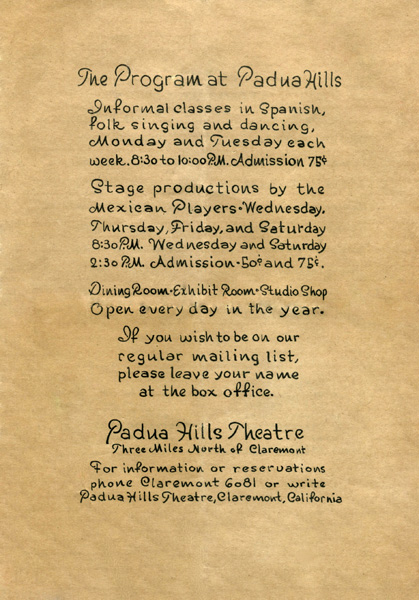 The Program at Padua Hills
Informal classes in Spanish,
folk singing and dancing,
Monday and Tuesday each
week. 8:30 to 10:00 P.M. Admission 75¢
Stage productions by the
Mexican Players·Wednesday,
Thursday, Friday, and Saturday
8:30 P.M. Wednesday and Saturday
2:30 P.M. Admission·50¢ and 75¢.
Dining Room·Exhibit Room·Studio Shop
Open every day in the year.
If you wish to be on our
regular mailing list,
please leave your name
at the box office.
Padua Hills Theatre
Three Miles North of Claremont
For information or reservations
phone Claremont 6081 or write
Padua Hills Theatre, Claremont, California